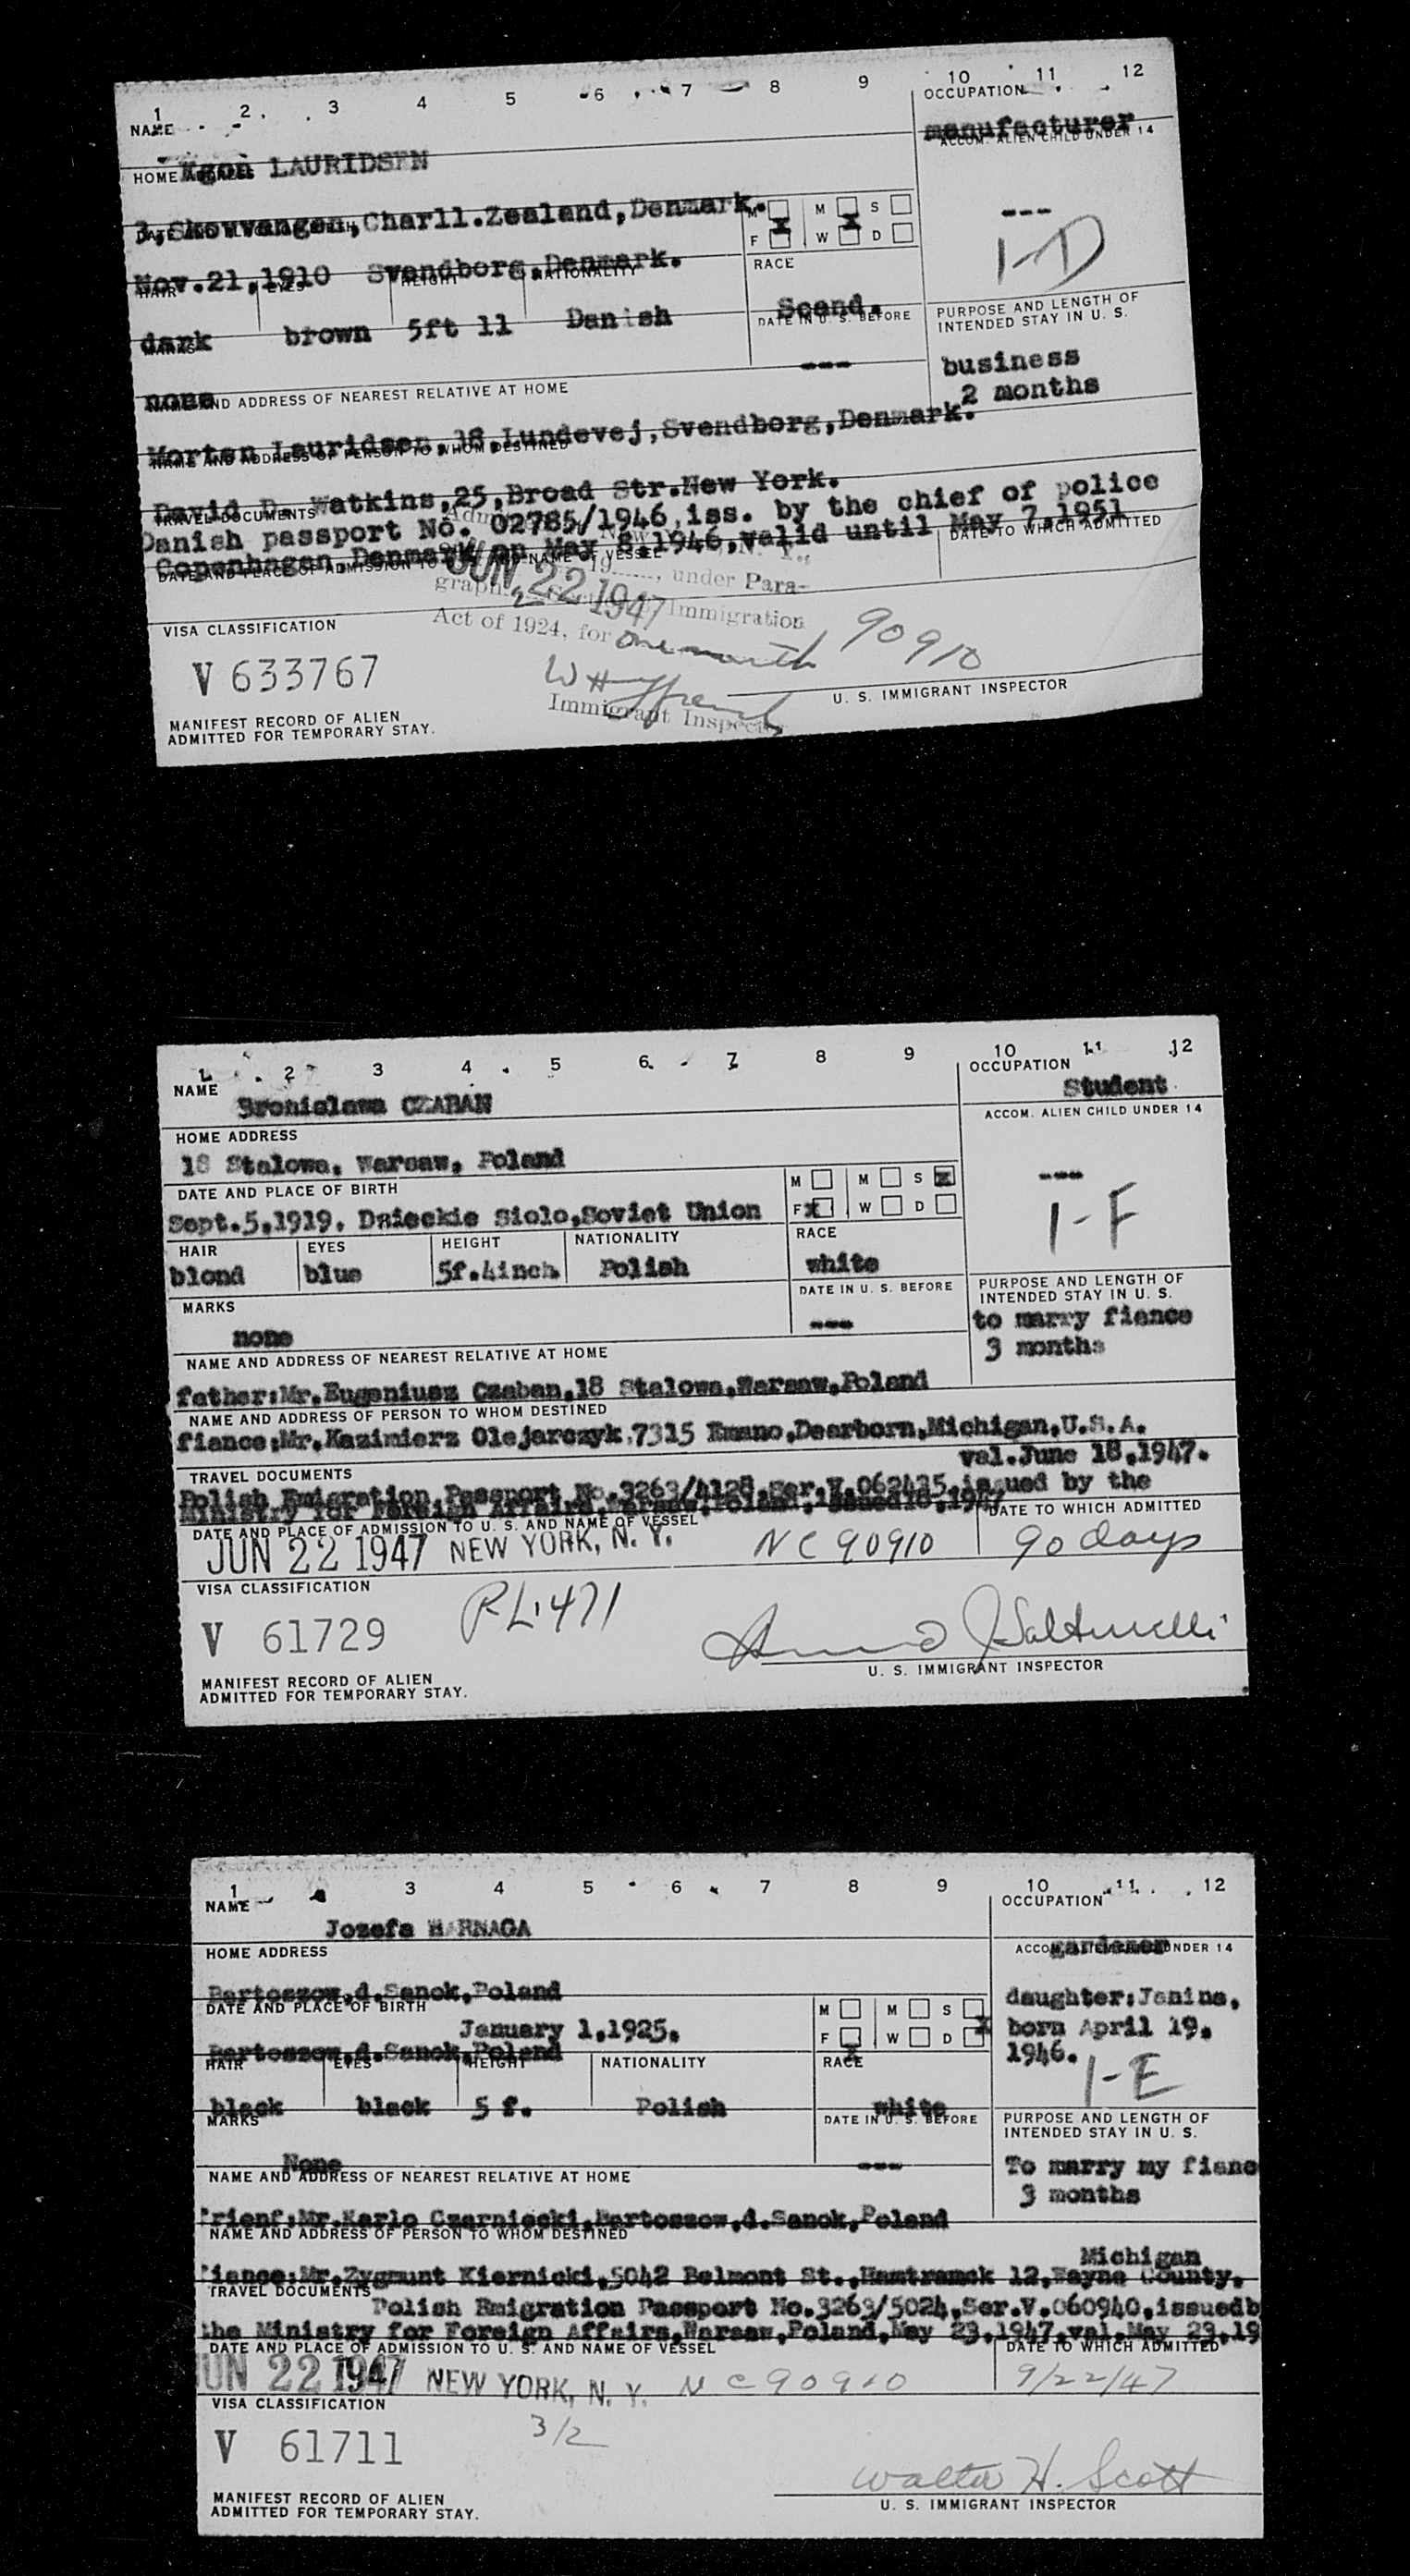 1 2 3 4 5 6 7 8 9 10 11 12
NAME OCCUPATION
manufacturer
ACCOM. ALIEN CHILD UNDER 14
Egon LAURIDSEN
HOME ADDRESS
3,Skovvangen,Charll.Zealand,Denmark.
M M S
F W D
---
1-D
Nov.21,1910 Svendborg,Denmark.
RACE
HAIR EYES HEIGHT NATIONALITY
Scand.
dark brown 5ft 11 Danish
DATE IN U. S. BEFORE
PURPOSE AND LENGTH OF
INTENDED STAY IN U. S.
MARKS
---
none
business
2 months
NAME AND ADDRESS OF NEAREST RELATIVE AT HOME
Morten Lauridsen,18,Lundevej,Svendborg,Denmark.
NAME AND ADDRESS OF PERSON TO WHOM DESTINED
David D. Watkins,25,Broad Str.New York.
TRAVEL DOCUMENTS
Danish passport No. 02785/1946,iss. by the chief of police
Copenhagen,Denmark on May 8,1946,valid until May 7,1951
DATE AND PLACE OF ADMISSION TO NAME OF VESSEL
DATE TO WHICH ADMITTED
19......, under Para-
JUN 22 1947
graph Immigration
Act of 1924, for one month
90910
VISA CLASSIFICATION
V 633767
Immigrant Inspector
U. S. IMMIGRANT INSPECTOR
MANIFEST RECORD OF ALIEN
ADMITTED FOR TEMPORARY STAY.
1 2 3 4 5 6 7 8 9 10 11 12
NAME OCCUPATION
Bronislawa CZABAN Student
ACCOM. ALIEN CHILD UNDER 14
HOME ADDRESS
18 Stalowa, Warsaw, Poland
---
DATE AND PLACE OF BIRTH
M M S x
Sept.5,1919. Dzieckie Siolo,Soviet Union
F x W D
1-F
HAIR EYES HEIGHT NATIONALITY RACE
blond blue 5f.4inch Polish white
MARKS
DATE IN U. S. BEFORE
PURPOSE AND LENGTH OF
INTENDED STAY IN U. S.
none
---
to marry fiance
3 months
NAME AND ADDRESS OF NEAREST RELATIVE AT HOME
father:Mr.Eugeniusz Czaban,18 Stalowa,Warsaw,Poland
NAME AND ADDRESS OF PERSON TO WHOM DESTINED
fiance:Mr.Kazimierz Olejarczyk,7315 Emano,Dearborn,Michigan,U.S.A.
val.June 18,1947.
TRAVEL DOCUMENTS
Polish Emigration Passport No.3263/4128,Ser.V.062435,issued by the
Ministry for Foreign Affairs,Warsaw,Poland,
DATE TO WHICH ADMITTED
DATE AND PLACE OF ADMISSION TO U. S. AND NAME OF VESSEL
JUN 22 1947 NEW YORK, N. Y. NC 90910 90 days
VISA CLASSIFICATION
V 61729 RL.471
U. S. IMMIGRANT INSPECTOR
MANIFEST RECORD OF ALIEN
ADMITTED FOR TEMPORARY STAY.
1 3 4 5 6 7 8 9 10 11 12
NAME OCCUPATION
Jozefa HARNAGA
gardener
HOME ADDRESS ACCOM. UNDER 14
Bartoszow,d.Sanok,Poland
daughter:Janina,
born April 19.
1946.
DATE AND PLACE OF BIRTH
M M S
January 1,1925.
F W D x
Bartoszow,d.Sanok,Poland
x
1-E
HAIR EYES HEIGHT NATIONALITY RACE
black black 5 f. Polish white
MARKS
DATE IN U. S. BEFORE
PURPOSE AND LENGTH OF
INTENDED STAY IN U. S.
None
---
To marry my fianc
3 months
NAME AND ADDRESS OF NEAREST RELATIVE AT HOME
Mr.Karlo Czarniecki,Bartoszow,d.Sanok,Poland
NAME AND ADDRESS OF PERSON TO WHOM DESTINED
Michigan
fiance:Mr.Zygmunt Kiernicki,5042 Belmont St.,Hamtramck 12,Wayne County,
TRAVEL DOCUMENTS
Polish Emigration Passport No.3263/5024,Ser.V.060940,issuedb
the Ministry for Foreign Affairs,Warsaw,Poland,May 23,1947,val.May 23,19
DATE AND PLACE OF ADMISSION TO U. S. AND NAME OF VESSEL
DATE TO WHICH ADMITTED
JUN 22 1947 NEW YORK, N. Y. NC 90910 9/22/47
VISA CLASSIFICATION
3/2
V 61711
Walter H. Scott
MANIFEST RECORD OF ALIEN
ADMITTED FOR TEMPORARY STAY.
U. S. IMMIGRANT INSPECTOR